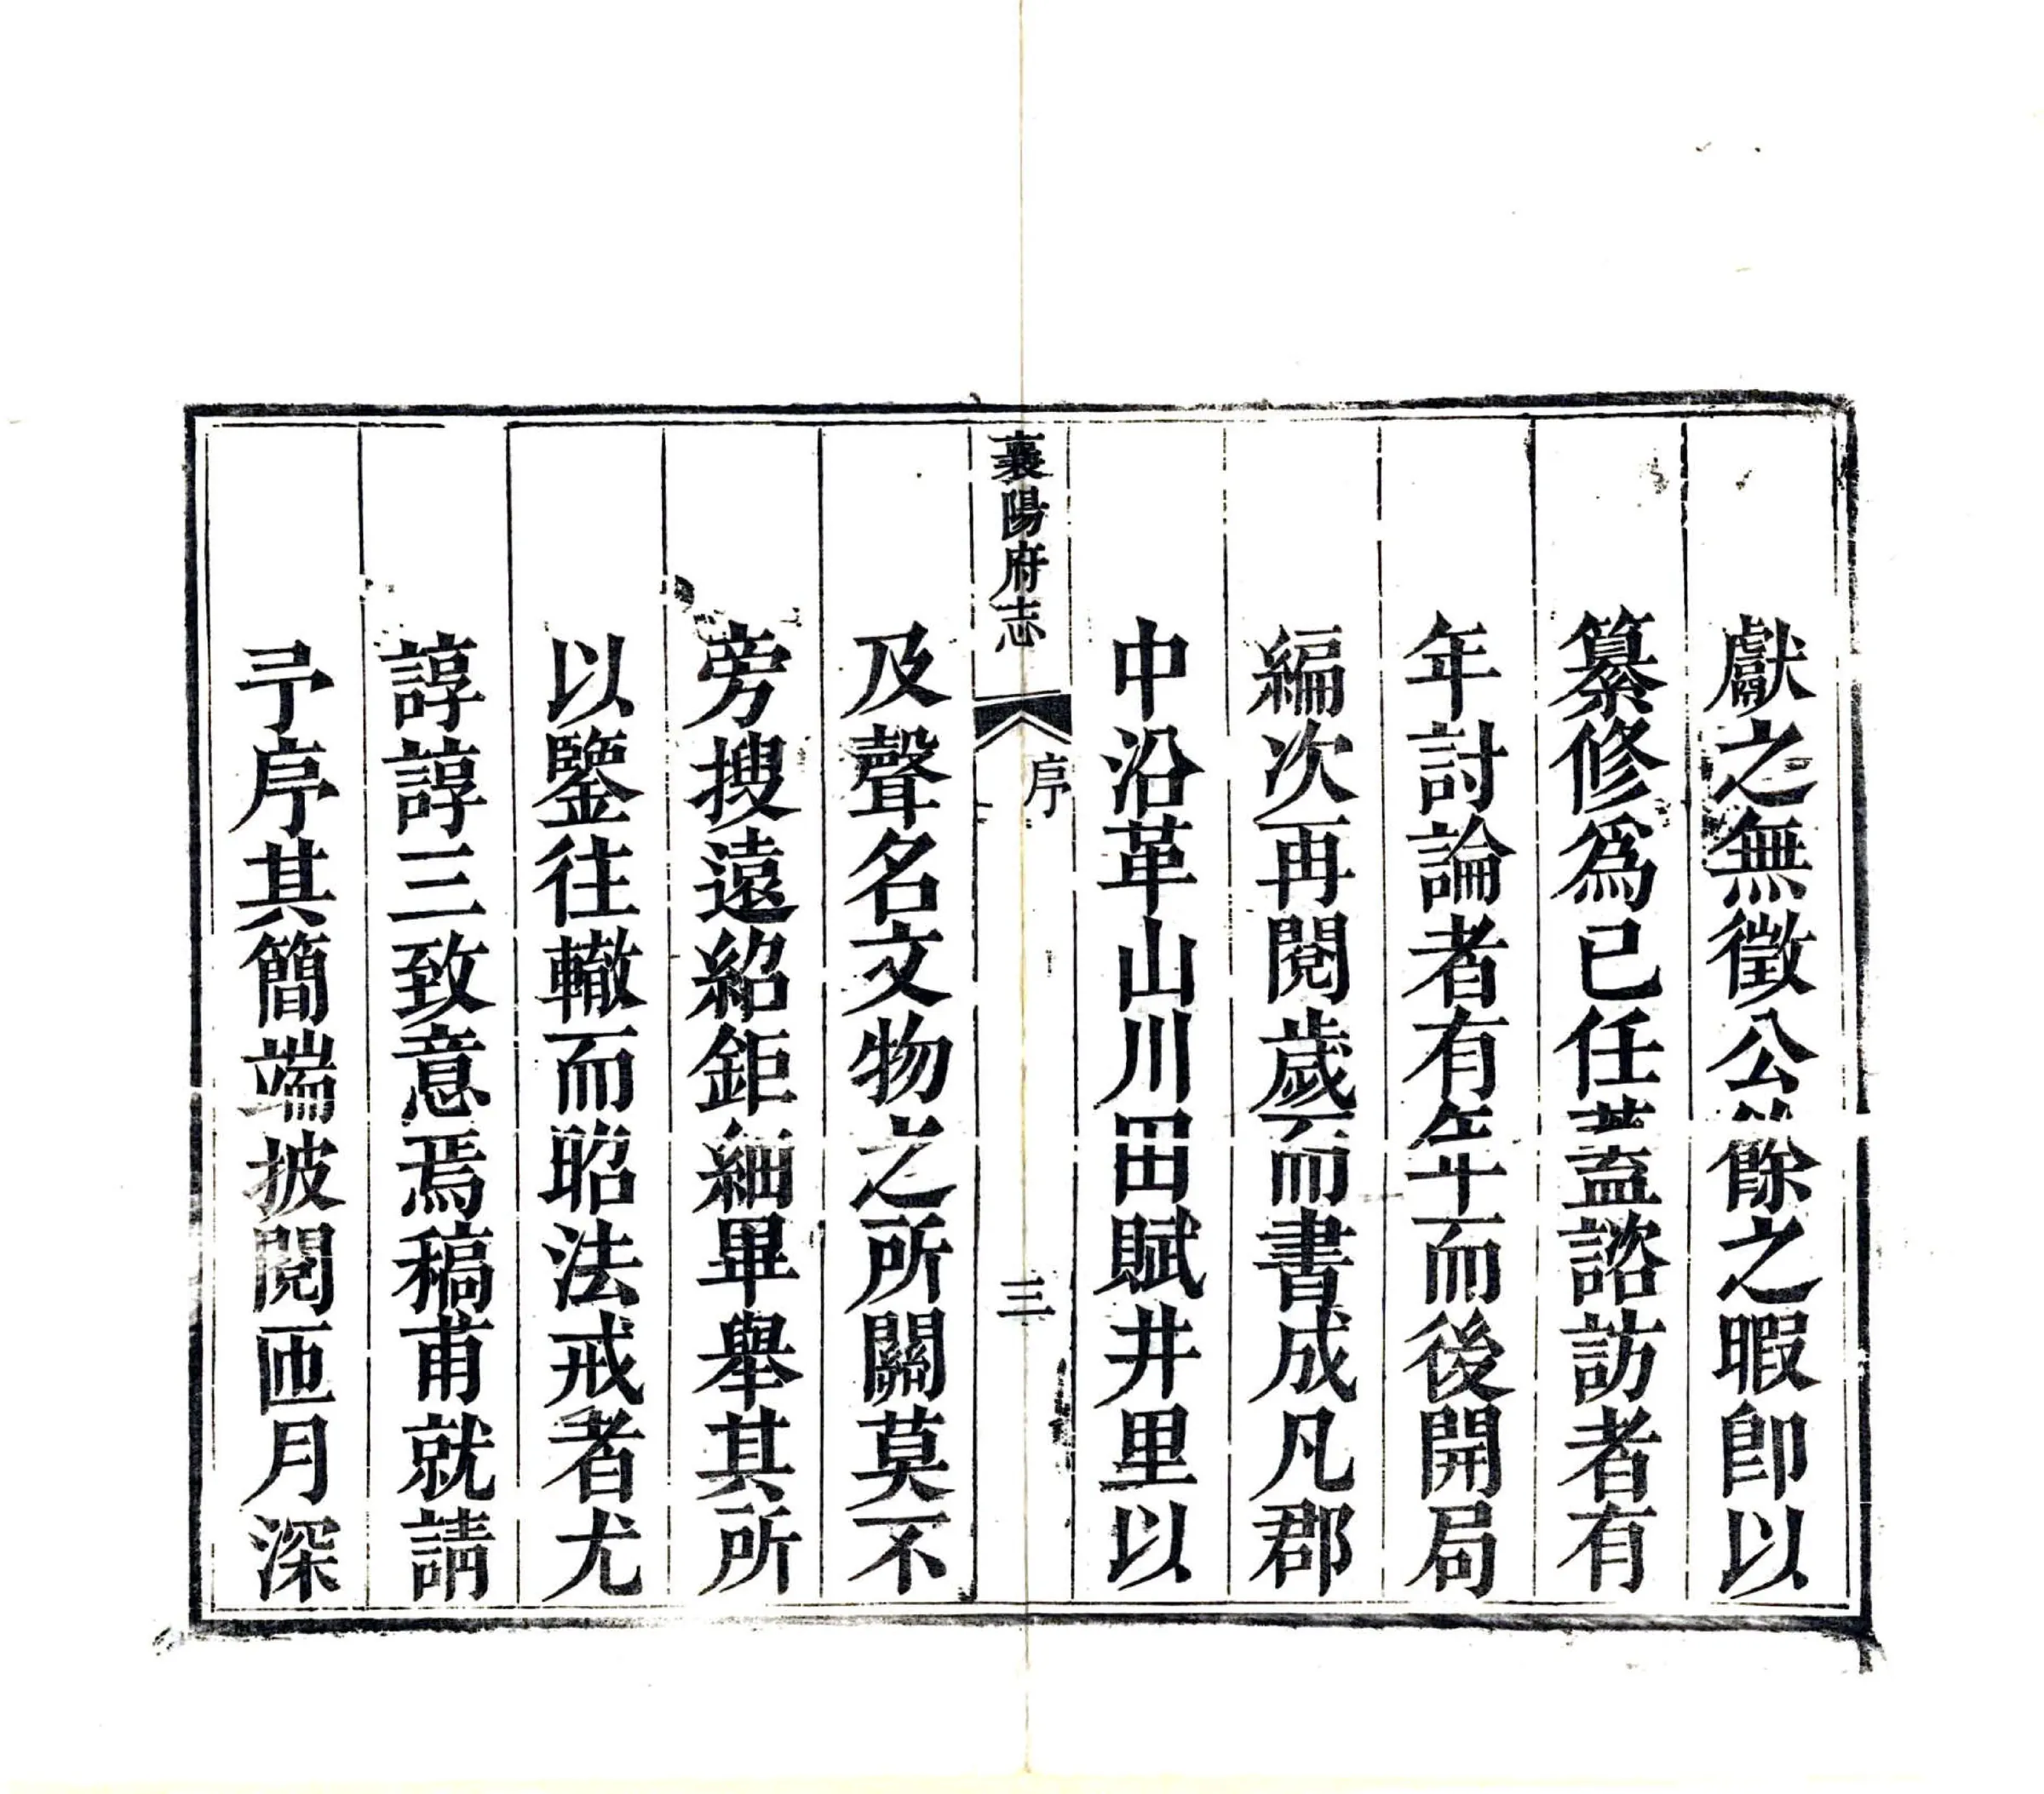 獻之無徵公餘之暇卽以
纂修爲已任蓋諮訪者有
年討論者有年而後開局
編次再閱歲而書成凡郡
中沿革山川田賦井里以
襄陽府志
序
三
及聲名文物之所關莫不
旁搜遠紹鉅細畢舉其所
以鑒往轍而昭法戒者尤
諄諄三致意焉稿甫就請
予序其簡端披閱匝月深